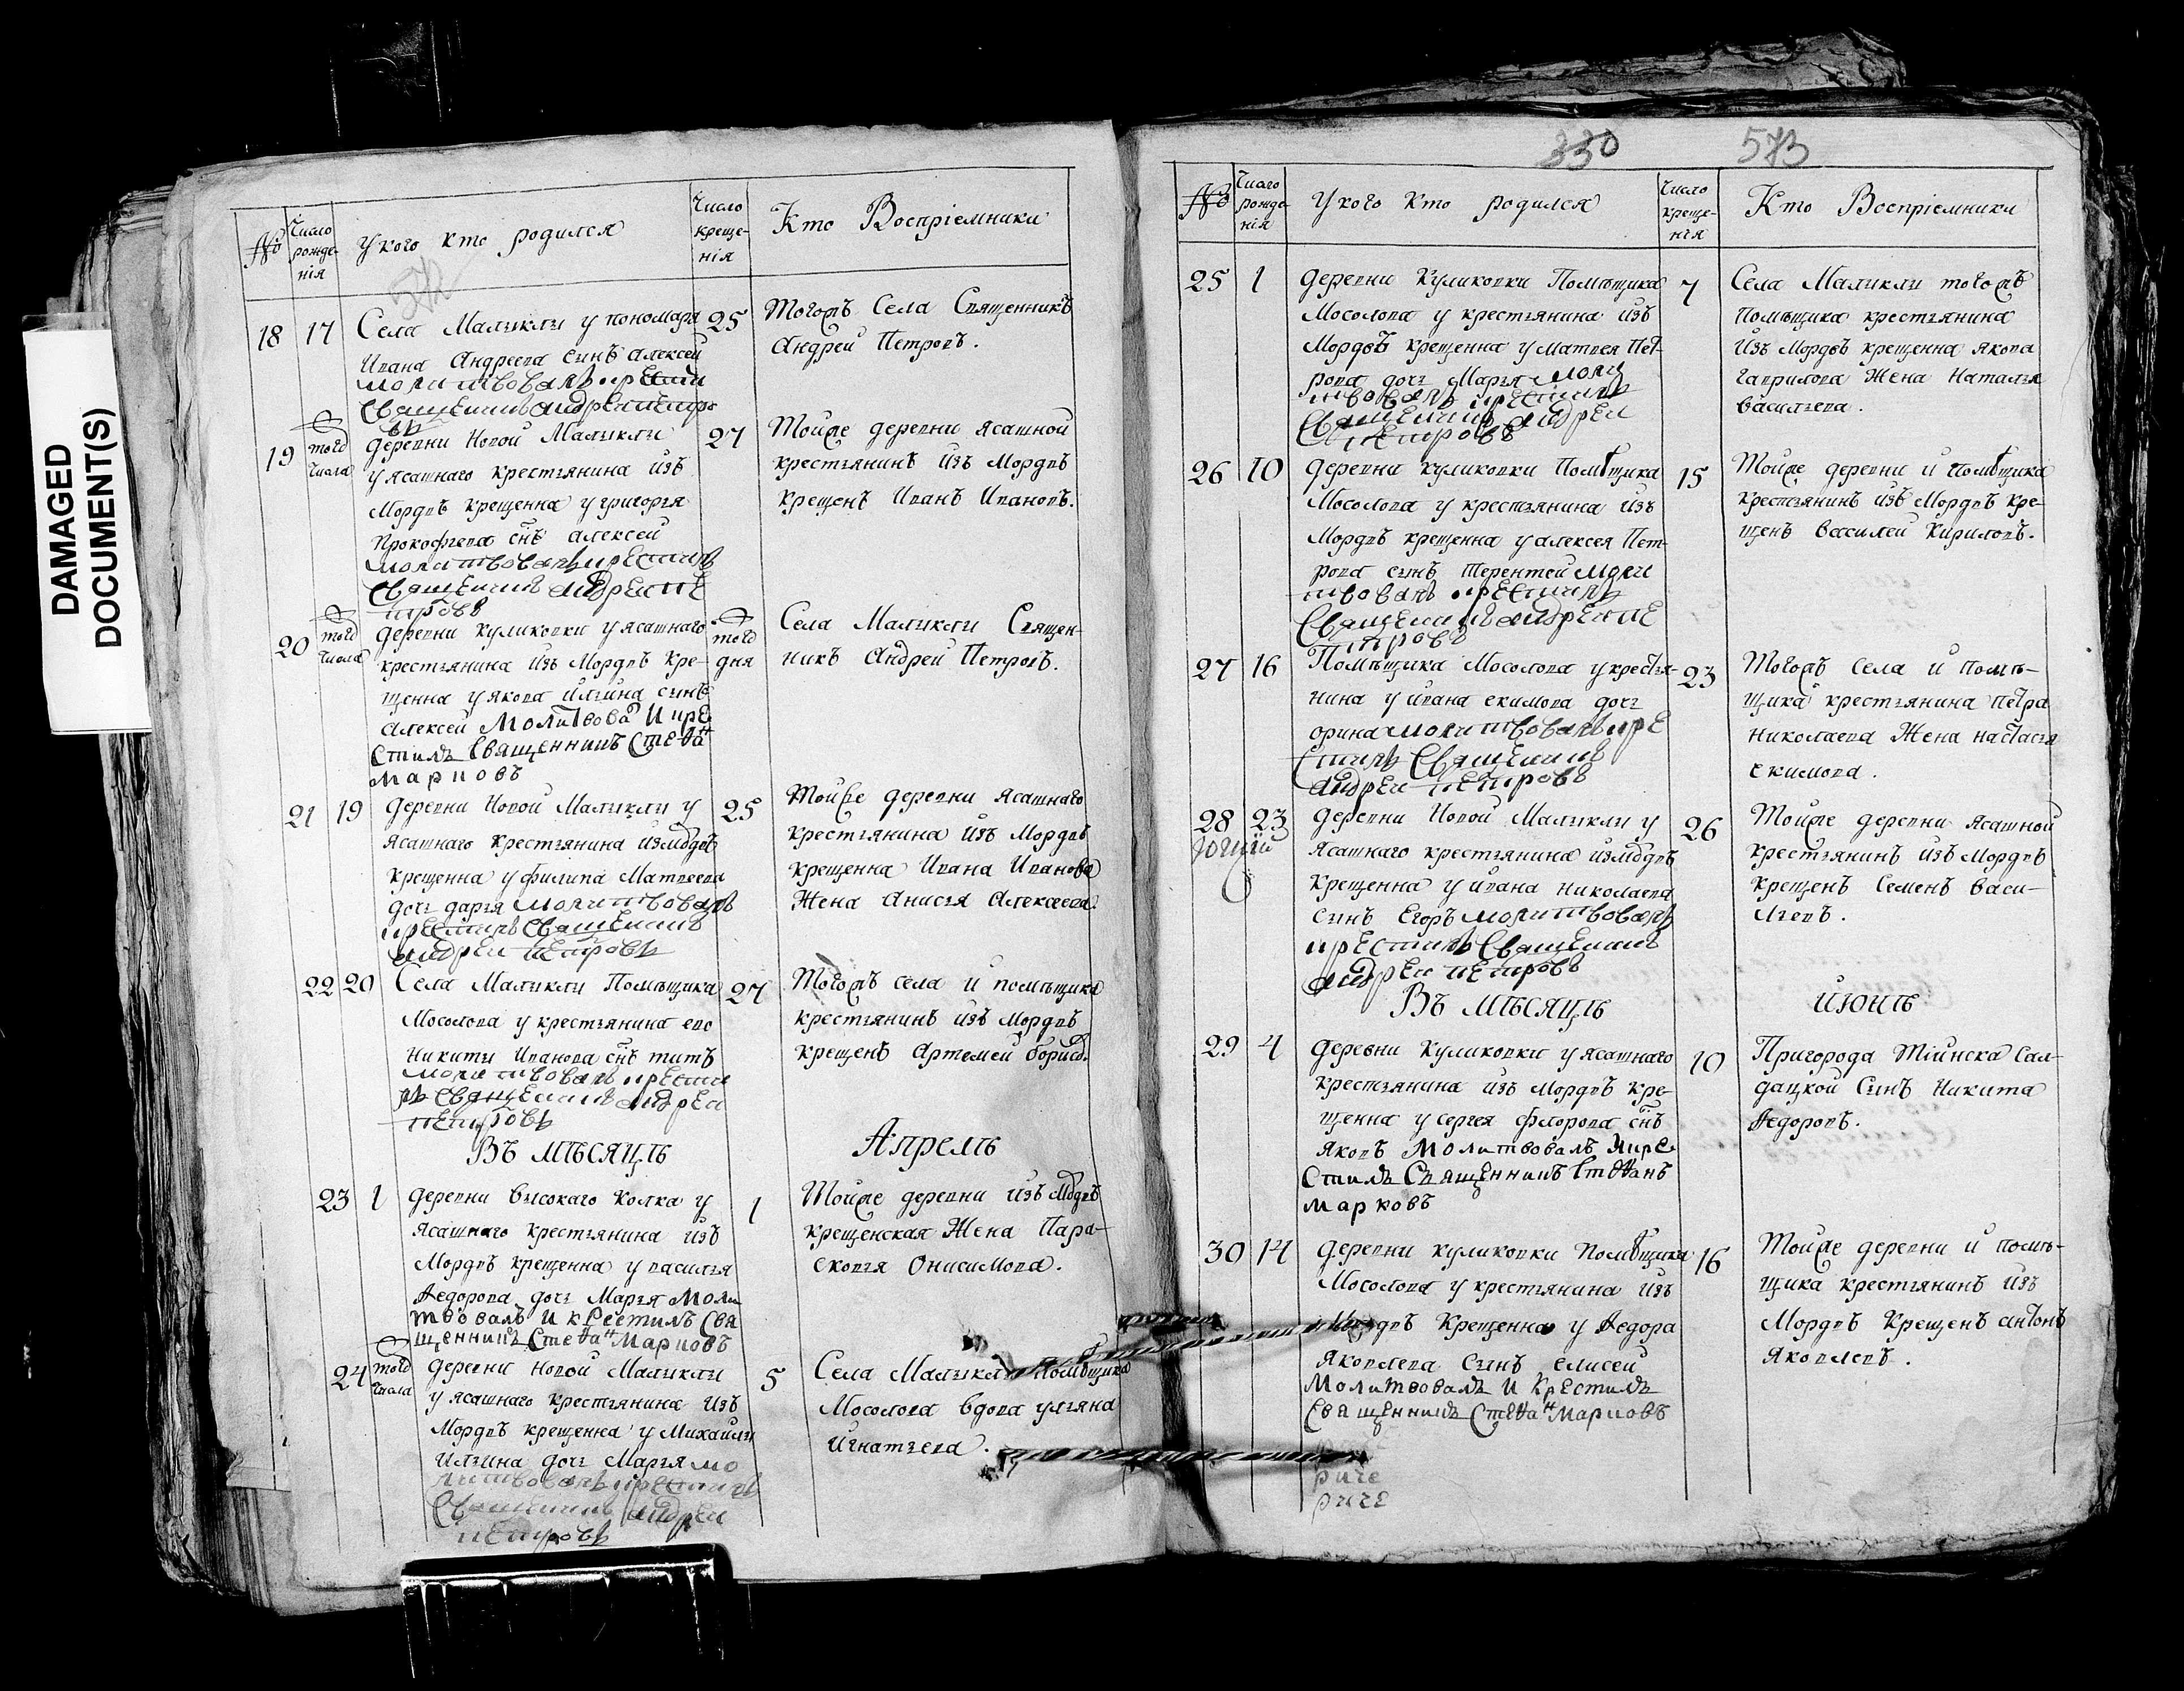 DAMAGED
DOCUMENT(S)
№
Число рожде-нія
У кого кто родился
Число креще-нія
Кто Воспріемники
572
18
17
Села Малыклы у пономаря
Ивана Андреева сынъ Алексей
молитвовалъ крестилъ
Священникъ Андрей Петро
въ
25
Тогожъ Села Священникъ
Андрей Петровъ.
19
того числа
деревни Новой Малыклы
у ясашнаго крестьянина изъ
Мордвъ крещенна у Григорья
Прокофьева снъ Алексей
молитвовалъ крестилъ
Священникъ Андрей Пе
тровъ
27
Тойже деревни ясашной
крестьянинъ изъ Мордвъ
крещенъ Иванъ Ивановъ.
20
того числа
деревни Куликовки у ясашнаго
крестьянина изъ Мордвъ кре-
щенна у Якова Ильина сынъ
Алексей Молитвова И кре
стилъ Священникъ Стефан
Марковъ
того дня
Села Малыклы Священ-
никъ Андрей Петровъ.
21
19
деревни Новой Малыклы у
ясашнаго крестьянина измордвъ
крещенна у Филипа Матвеева
дочь Дарья молитвовалъ
крестилъ Священникъ
Андрей Петровъ
25
Тойже деревни ясашнаго
крестьянина изъ Мордвъ
крещенна Ивана Иванова
Жена Анисья Алексеева.
22
20
Села Малыклы Помѣщика
Мосолова у крестьянина ево
Никиты Иванова снъ Титъ
молитвовалъ крести
лъ Священникъ Андрей
Петровъ
27
Тогожъ села и помѣщика
крестьянинъ изъ Мордвъ
крещенъ Артемей Борисо.
Въ мѣсяцѣ Апрелѣ
23
1
деревни Высокаго Колка у
ясашнаго крестьянина изъ
Мордвъ крещенна у Василья
Ѳедорова дочь Марья Моли
твовалъ И крестилъ Свя
щенникъ Стефан Марковъ
1
Тойже деревни изъ Мордвъ
крещенская Жена Пара-
сковья Онисимова.
24
того числа
деревни Новой Малыклы
у ясашнаго крестьянина изъ
Мордвъ крещенна у Михайлы
Ильина дочь Марья мо
литвовалъ крестилъ
Священникъ Андрей
Петровъ
5
Села Малыклы помѣщика
Мосолова вдова Ульяна
Игнатьева.
330
573
№
Число рожде-нія
У кого кто родился
Число креще-нія
Кто Воспріемники
25
1
деревни Куликовки Помѣщика
Мосолова у крестьянина изъ
Мордвъ крещенна у Матвея Пет-
рова дочь Марья моли
твовалъ крестилъ
Священникъ Андрей
Петровъ
7
Села Малыклы тогожъ
помѣщика крестьянина
изъ Мордвъ крещенна Якова
Гаврилова Жена Наталья
Васильева.
26
10
деревни Куликовки Помѣщика
Мосолова у крестьянина изъ
Мордвъ крещенна у Алексея Пет-
рова сынъ Терентей моли
твовалъ крестилъ
Священникъ Андрей Пе
тровъ
15
Тойже деревни и помѣщика
крестьянинъ изъ Мордвъ кре-
щенъ Василей Кириловъ.
27
16
Помѣщика Мосолова у крестья-
нина у Ивана Екимова дочь
Орина молитвовалъ кре
стилъ Священникъ
Андрей Петровъ
23
Тогожъ села и помѣ-
щика крестьянина Петра
Николаева Жена Настасья
Екимова.
28
23
деревни Новой Малыклы у
ясашнаго крестьянина измордвъ
крещенна у Ивана Николаева
сынъ Егоръ молитвовалъ
крестилъ Священникъ
Андрей Петровъ
26
Тойже деревни ясашной
крестьянинъ изъ Мордвъ
крещенъ Семенъ Васи-
льевъ.
Въ мѣсяцѣ Июнѣ
29
4
деревни Куликовки у ясашнаго
крестьянина изъ Мордвъ кре-
щенна у Сергея Флорова снъ
Яковъ Молитвовалъ Икре
стилъ Священникъ Стефанъ
Марковъ
10
Пригорода Тіинска Сал-
дацкой Сынъ Никита
Ѳедоровъ.
30
14
деревни Куликовки Помѣщика
Мосолова у крестьянина изъ
Мордвъ Крещенна у Ѳедора
Яковлева Сынъ Елисей
Молитвовалъ И Крестилъ
Священникъ Стефан Марковъ
16
Тойже деревни и помѣ-
щика крестьянинъ изъ
Мордвъ Крещенъ Антонъ
Яковлевъ.